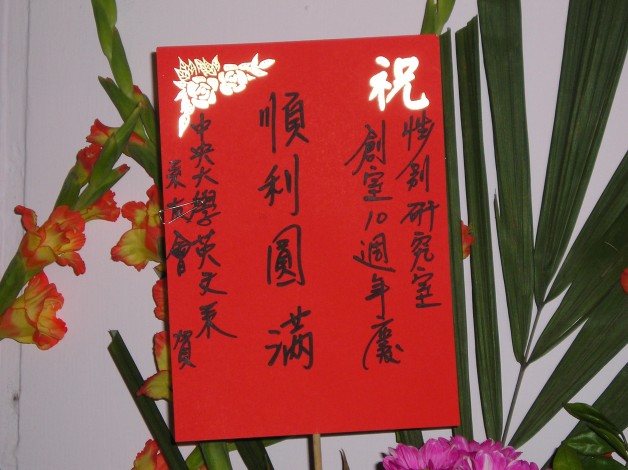 祝
性別研究室
創室10週年慶
順利圓滿
中央大學英文系
賀